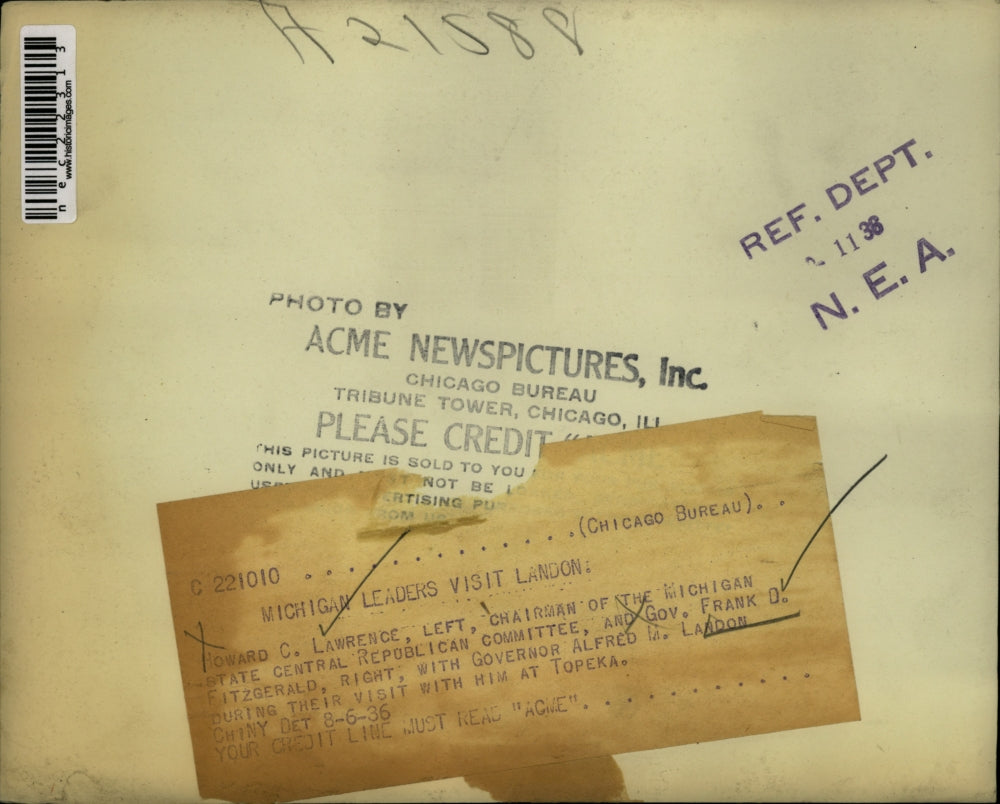 A 21588
nec22313
www.historicimages.com
REF. DEPT.
11 36
N. E. A.
PHOTO BY
ACME NEWSPICTURES, Inc.
CHICAGO BUREAU
TRIBUNE TOWER, CHICAGO, ILL
PLEASE CREDIT
THIS PICTURE IS SOLD TO YOU
ONLY AND NOT BE
C 221010 . . . . . . . . . . . . . (CHICAGO BUREAU). . .
MICHIGAN LEADERS VISIT LANDON:
HOWARD C. LAWRENCE, LEFT, CHAIRMAN OF THE MICHIGAN
STATE CENTRAL REPUBLICAN COMMITTEE, AND GOV. FRANK D.
FITZGERALD, RIGHT, WITH GOVERNOR ALFRED M. LANDON
DURING THEIR VISIT WITH HIM AT TOPEKA.
CHINY DET 8-6-36
YOUR CREDIT LINE MUST READ "ACME". . . . . . . . . . .